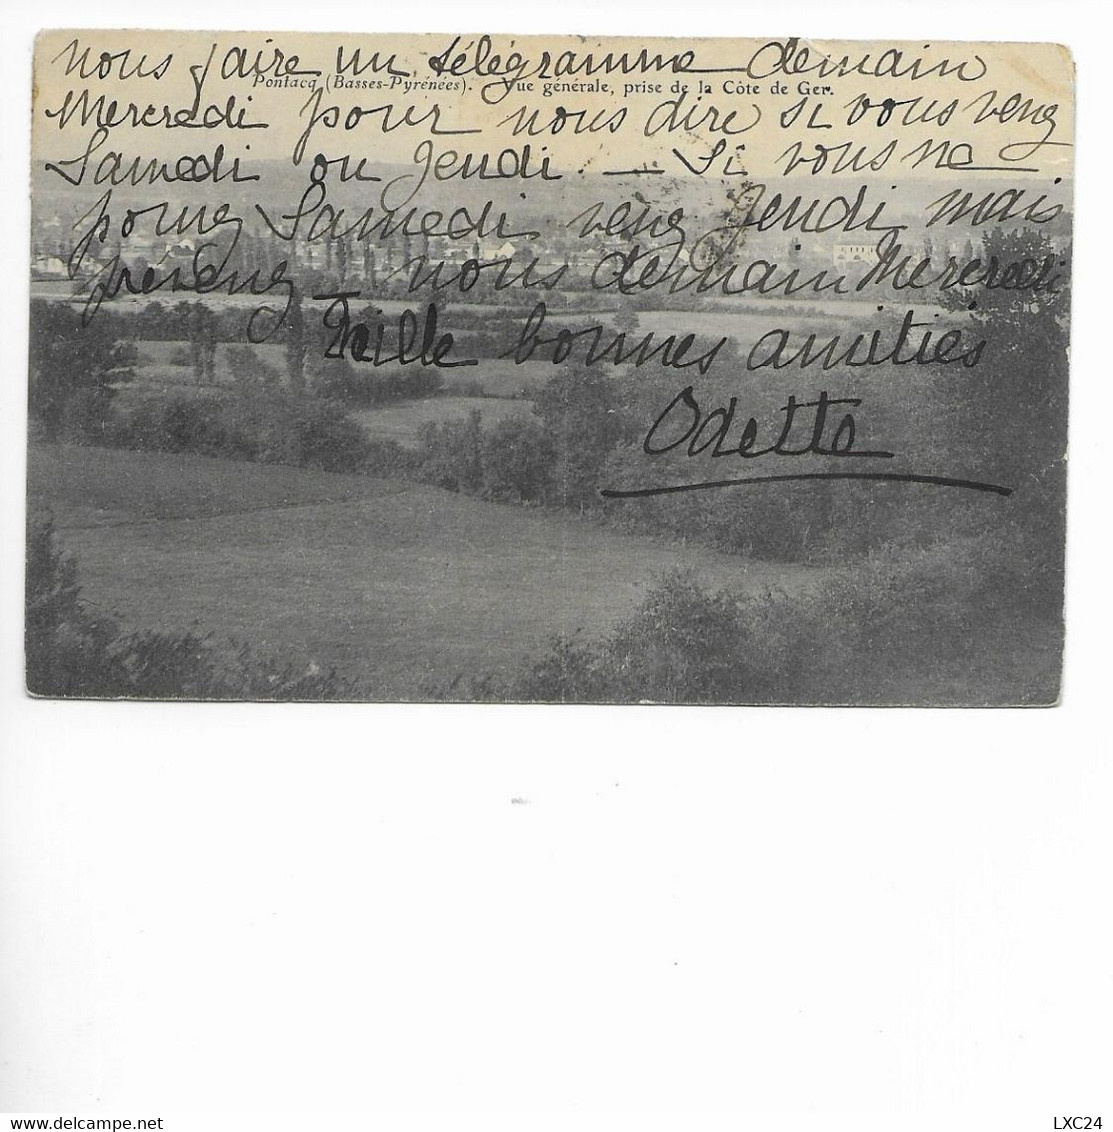 nous faire un télégramme demain
Pontacq (Basses-Pyrénées). - Vue générale, prise de la Côte de Ger.
Mercredi pour nous dire si vous venez
Samedi ou Jeudi. — Si vous ne
pouvez Samedi venez Jeudi mais
prévenez — nous demain Mercredi
Mille bonnes amitiés
Odette
delcampe.net
LXC24